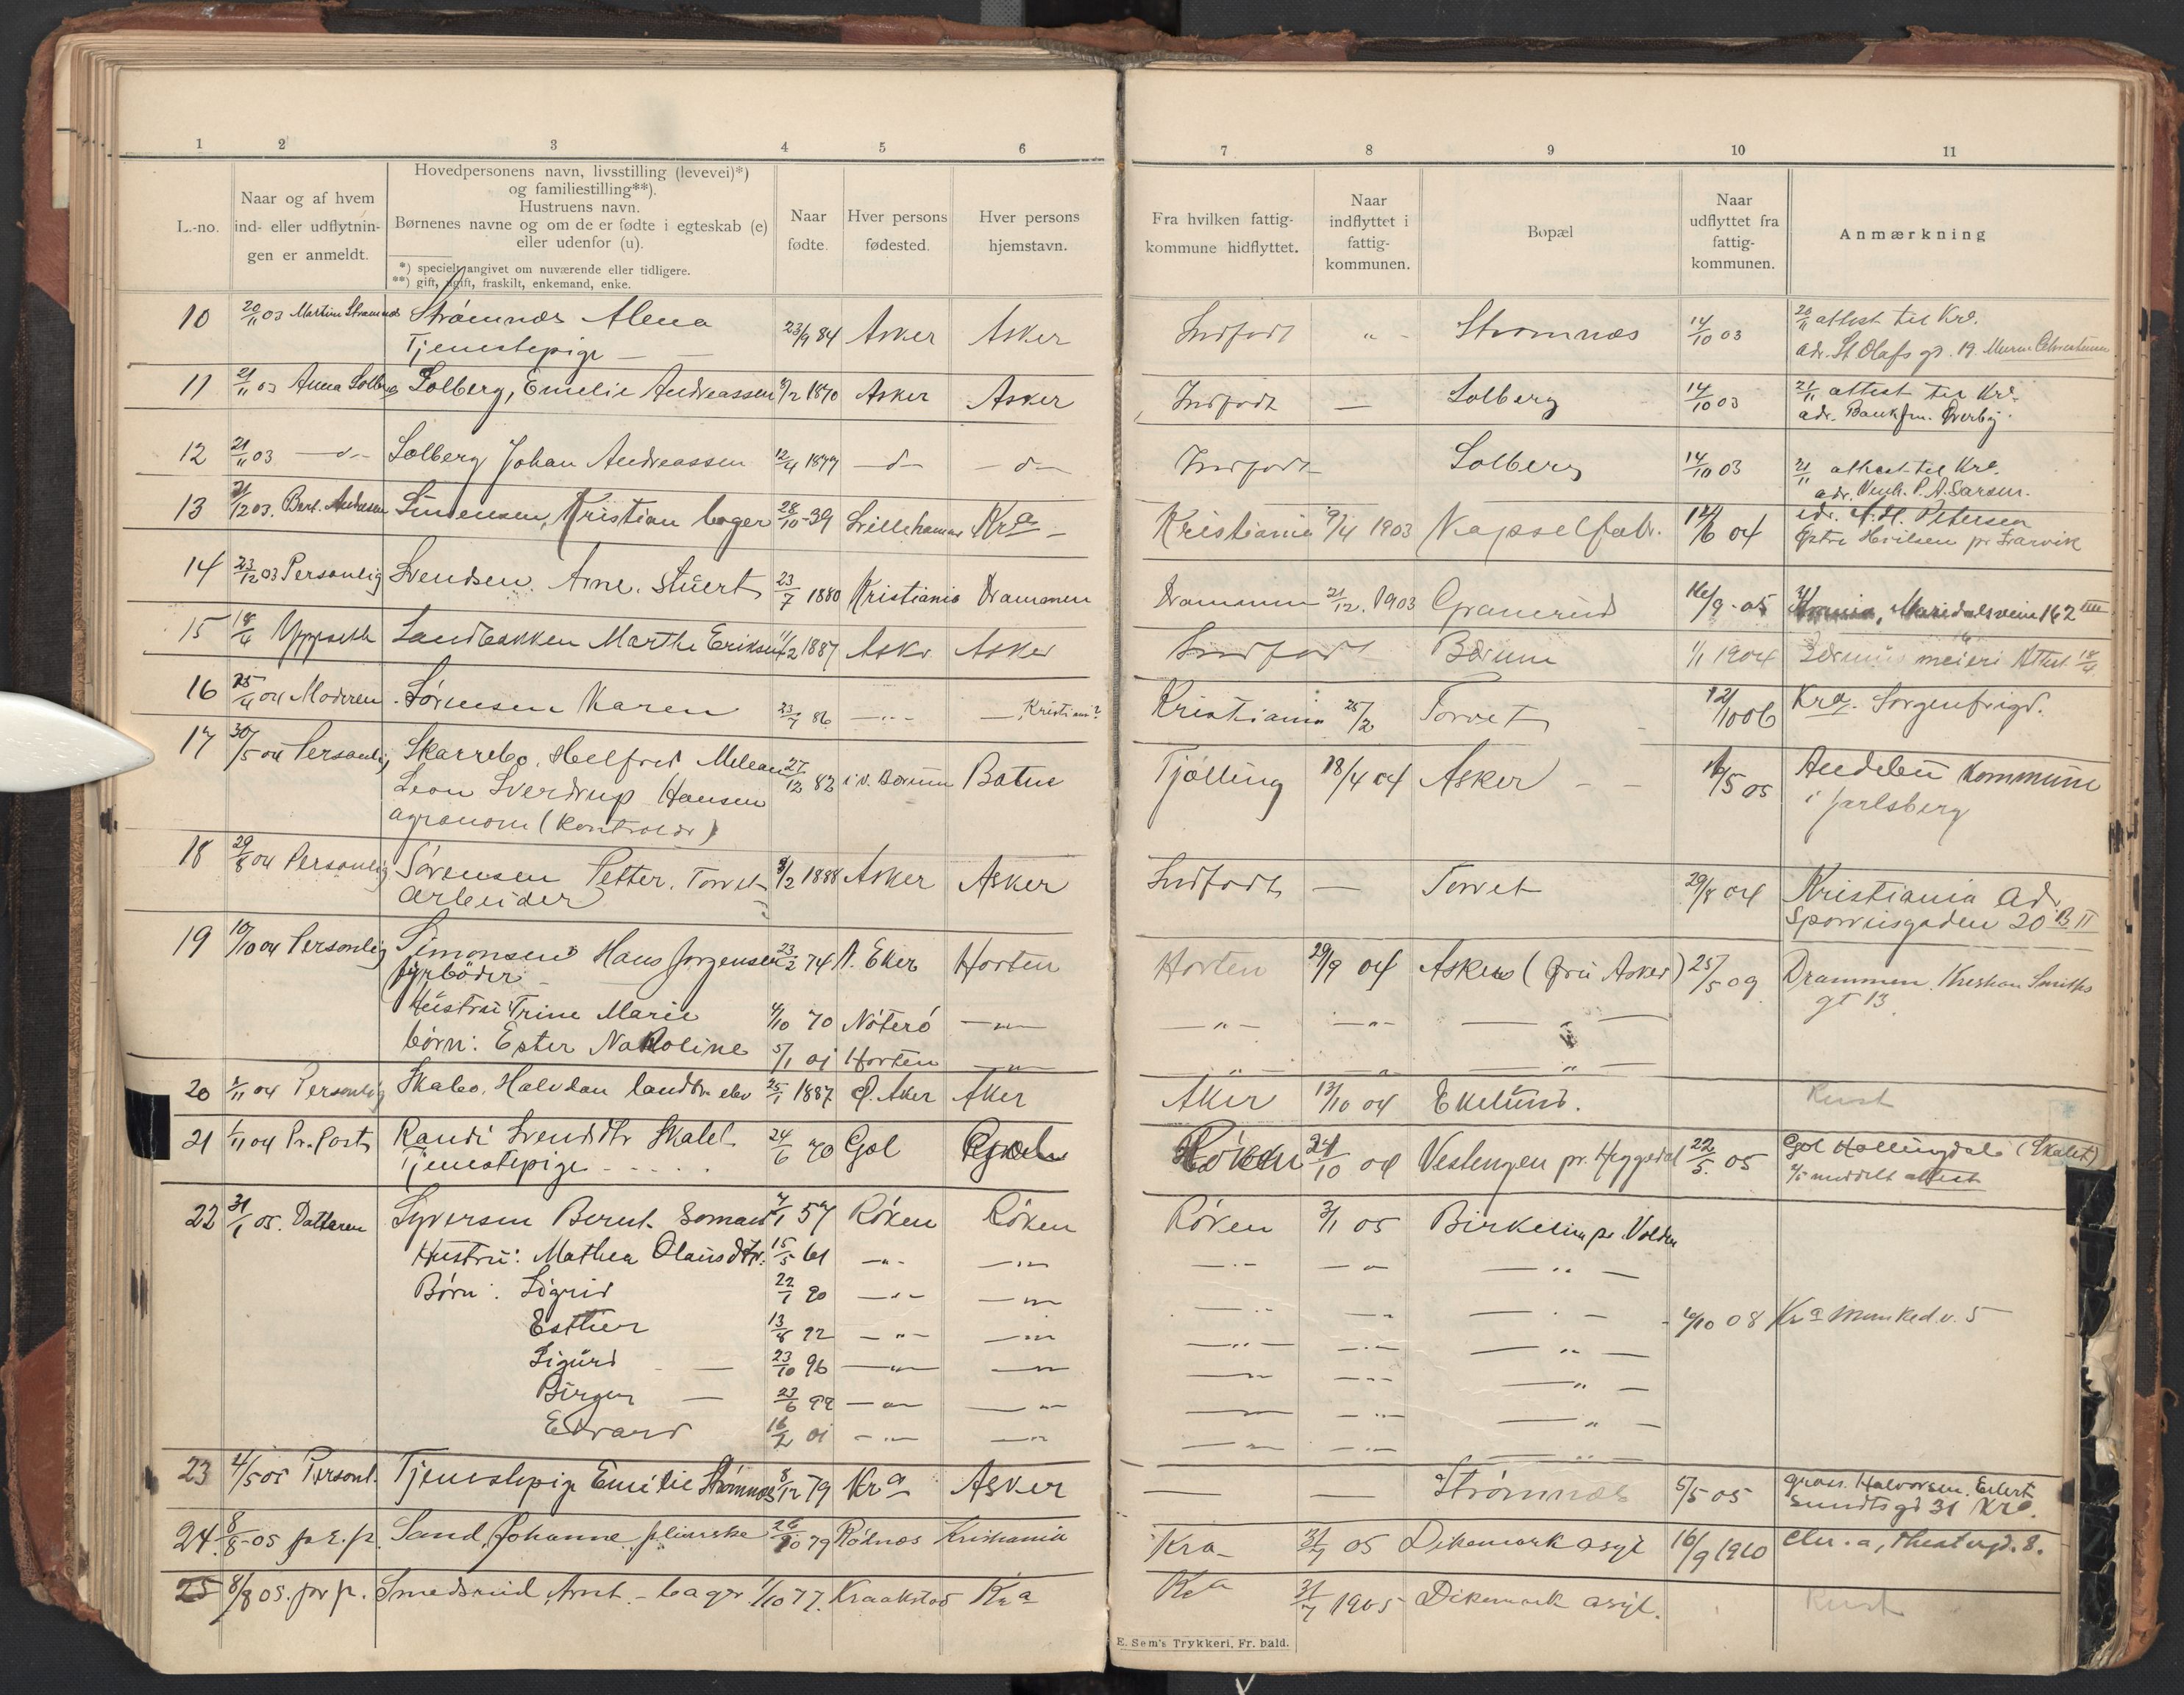 1 2 3 4 5 6 7 8 9 10 11
L.-no.
Naar og af hvem
ind- eller udflytnin-
gen er anmeldt.
Hovedpersonens navn, livsstilling (levevei)*)
og familiestilling**).
Hustruens navn.
Børnenes navne og om de er fødte i egteskab (e)
eller udenfor (u).
*) specielt angivet om nuværende eller tidligere.
**) gift, ugift, fraskilt, enkemand, enke.
Naar
fødte.
Hver persons
fødested.
Hver persons
hjemstavn.
Fra hvilken fattig-
kommune hidflyttet.
Naar
indflyttet i
fattig-
kommunen.
Bopæl
Naar
udflyttet fra
fattig-
kommunen.
Anmærkning
10 20/11 03 Martin Strømnæs Strømnæs Alena 23/9 84 Asker Asker Indfødt „ - Strømnæs 14/10 03 20/11 attest til Kra.
Tjenestepige — — adr. St Olafs gd. 19.
11 21/11 03 Anna Solberg Solberg, Emelie Andreassen /2 1870 Asker Asker Indfødt — Solberg 14/10 03 21/11 attest til Kra.
adr. Overby.
12 21/11 03 — d — Solberg Johan Andreassen 12/4 1877 — d — — d — Indfødt Solberg 14/10 03 21/11 attest til Kra.
adr. P. A. Larsen.
13 21/12 03. Simensen, Kristian bager 28/10 - 39 Lillehamar Kra — Kristiania 9/4 1903 Kapselfabr. 14/6 04 adr. H. Petersen
pr Larvik
14 23/12 03 Personlig Svendsen. Arne. Stuert 23/7 1880 Kristiania Drammen Drammen 21/12. 1903 Granerud 16/9 - 05 Maridalsveien 162 IIII
15 18/4 Oppsitt Sandbakken Marthe Eriksen 11/2 1887 Asker Asker Indfødt Bærum 1/1 1904 Bærums meieri Attest 18/4
16 25/4 04 Moderen Sørensen Karen 23/7 86 — „ — — Kristiania? Kristiania 25/2 Torvet 12/10 06 Kra. Sorgenfrigd.
17 30/5 04 Personlig Skarrebo. Helfred Melean 27/12 82 i V. Bærum Botne Tjølling 18/4 04 Asker — — 16/5 05 Andebu Kommune
Leon Sverdrup Hansen i Jarlsberg
agronom (kontrolør)
18 29/8 04 Personlig Sørensen Petter. Torvet 9/2 1888 Asker Asker Indfødt — Torvet 29/8 04 Kristiania Adr
Arbeider Sporveisgaden 20 B II
19 10/10 04 Personlig Simonsen Hans Jorgensen 23/2 74 N. Eker Horten Horten 29/9 04 Asker (Øvri Asker) 25/5 09 Drammen Kristian Smiths
fyrbøder gt 13.
Hustru Trine Marie 4/10 70 Nøterø — „ — — „ — — „ — — „ —
børn: Ester Nakoline 5/1 01 Horten — „ — — „ — — „ — — „ —
20 1/11 04 Personlig Skabo, Halvdan landbr. elev 25/1 1887 Ø. Aker Aker Aker 13/10 04 Ekelund. Kust
21 1/11 04 Pr. Post Randi Svendsdtr Skalet 24/6 70 Gol Gol Røken 24/10 04 Vestengen pr. Heggedal 22/5. 05 Gol Hallingdal (Skalet)
Tjenestepige - - - - . meddelt attest
22 31/1 05. Datteren Syversen Bernt. Sømand 4/1 57 Røken Røken Røken 3/1 05 Birkelien pr. Volden
Hustru: Mathea Olausdtr: 15/5 61 — „ — — „ — — „ — — „ — — „ —
Børn: Sigrid 22/1 90 — „ — — „ — — „ — — „ — — „ — 10/10 08 Kra Munked.v. 5
Esther 13/8 92 — „ — — „ — — „ — — „ — — „ —
Sigurd — 23/10 96 — „ — — „ — — „ — — „ — — „ —
Birger — 23/6 99 — „ — — „ — — „ — — „ — — „ —
Edvard 16/2 01 — „ — — „ — — „ — — „ — — „ —
23 4/5 05 Personl. Tjenestepige Emilie Strømnæs 8/12 79 Kra Asker — — Strømnæs 5/5 05 gross. Halvorsen. Eilert
Sundtsgd 31 Kra.
24. 8/8 - 05 pr. p. Sand, Johanne pleierske 26/10 79 Rødnæs Kristiania Kra — 31/7 05 Dikemark asyl 16/9 1910 Chr.a, Theatergd. 8.
25 8/8 05. pr p. Smedsrud, Arnt. - bager 1/10 77. Kraakstad Kra Kra 31/7 1905 Dikemark asyl. Kust
E. Sem's Trykkeri, Fr. bald.